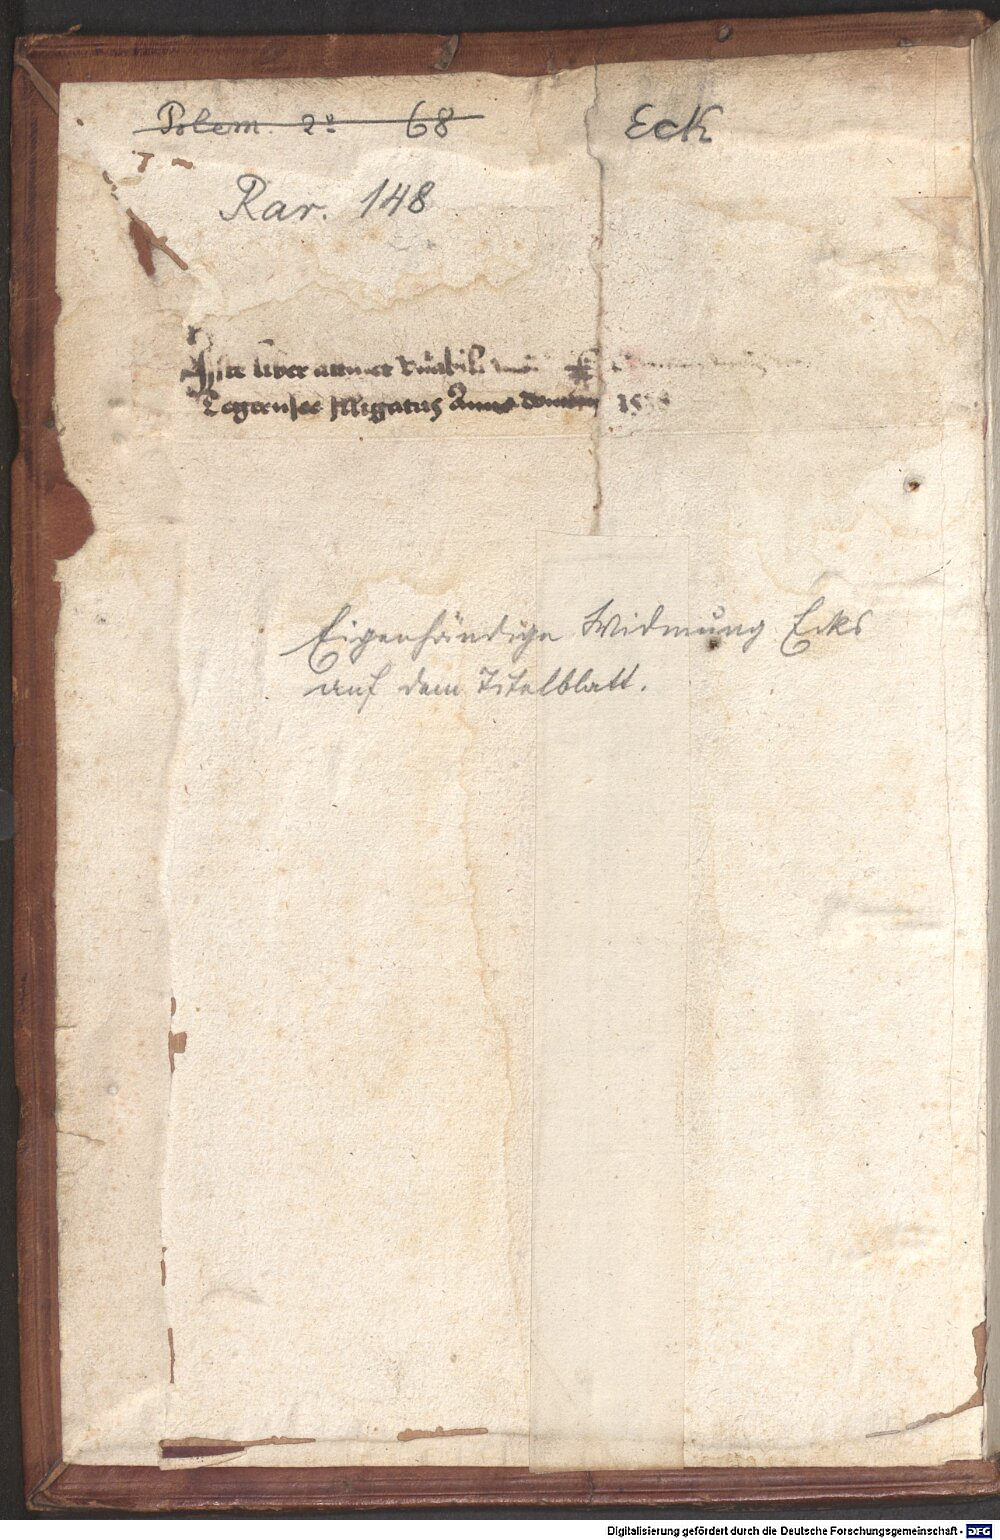 Polem. 2° 68 Eck
Rar. 148
Iste liber attinet
Tegernsee Illigatus Anno Domini 15
Eigenhändige Widmung Ecks
auf dem Titelblatt.
Digitalisierung gefördert durch die Deutsche Forschungsgemeinschaft - DFG